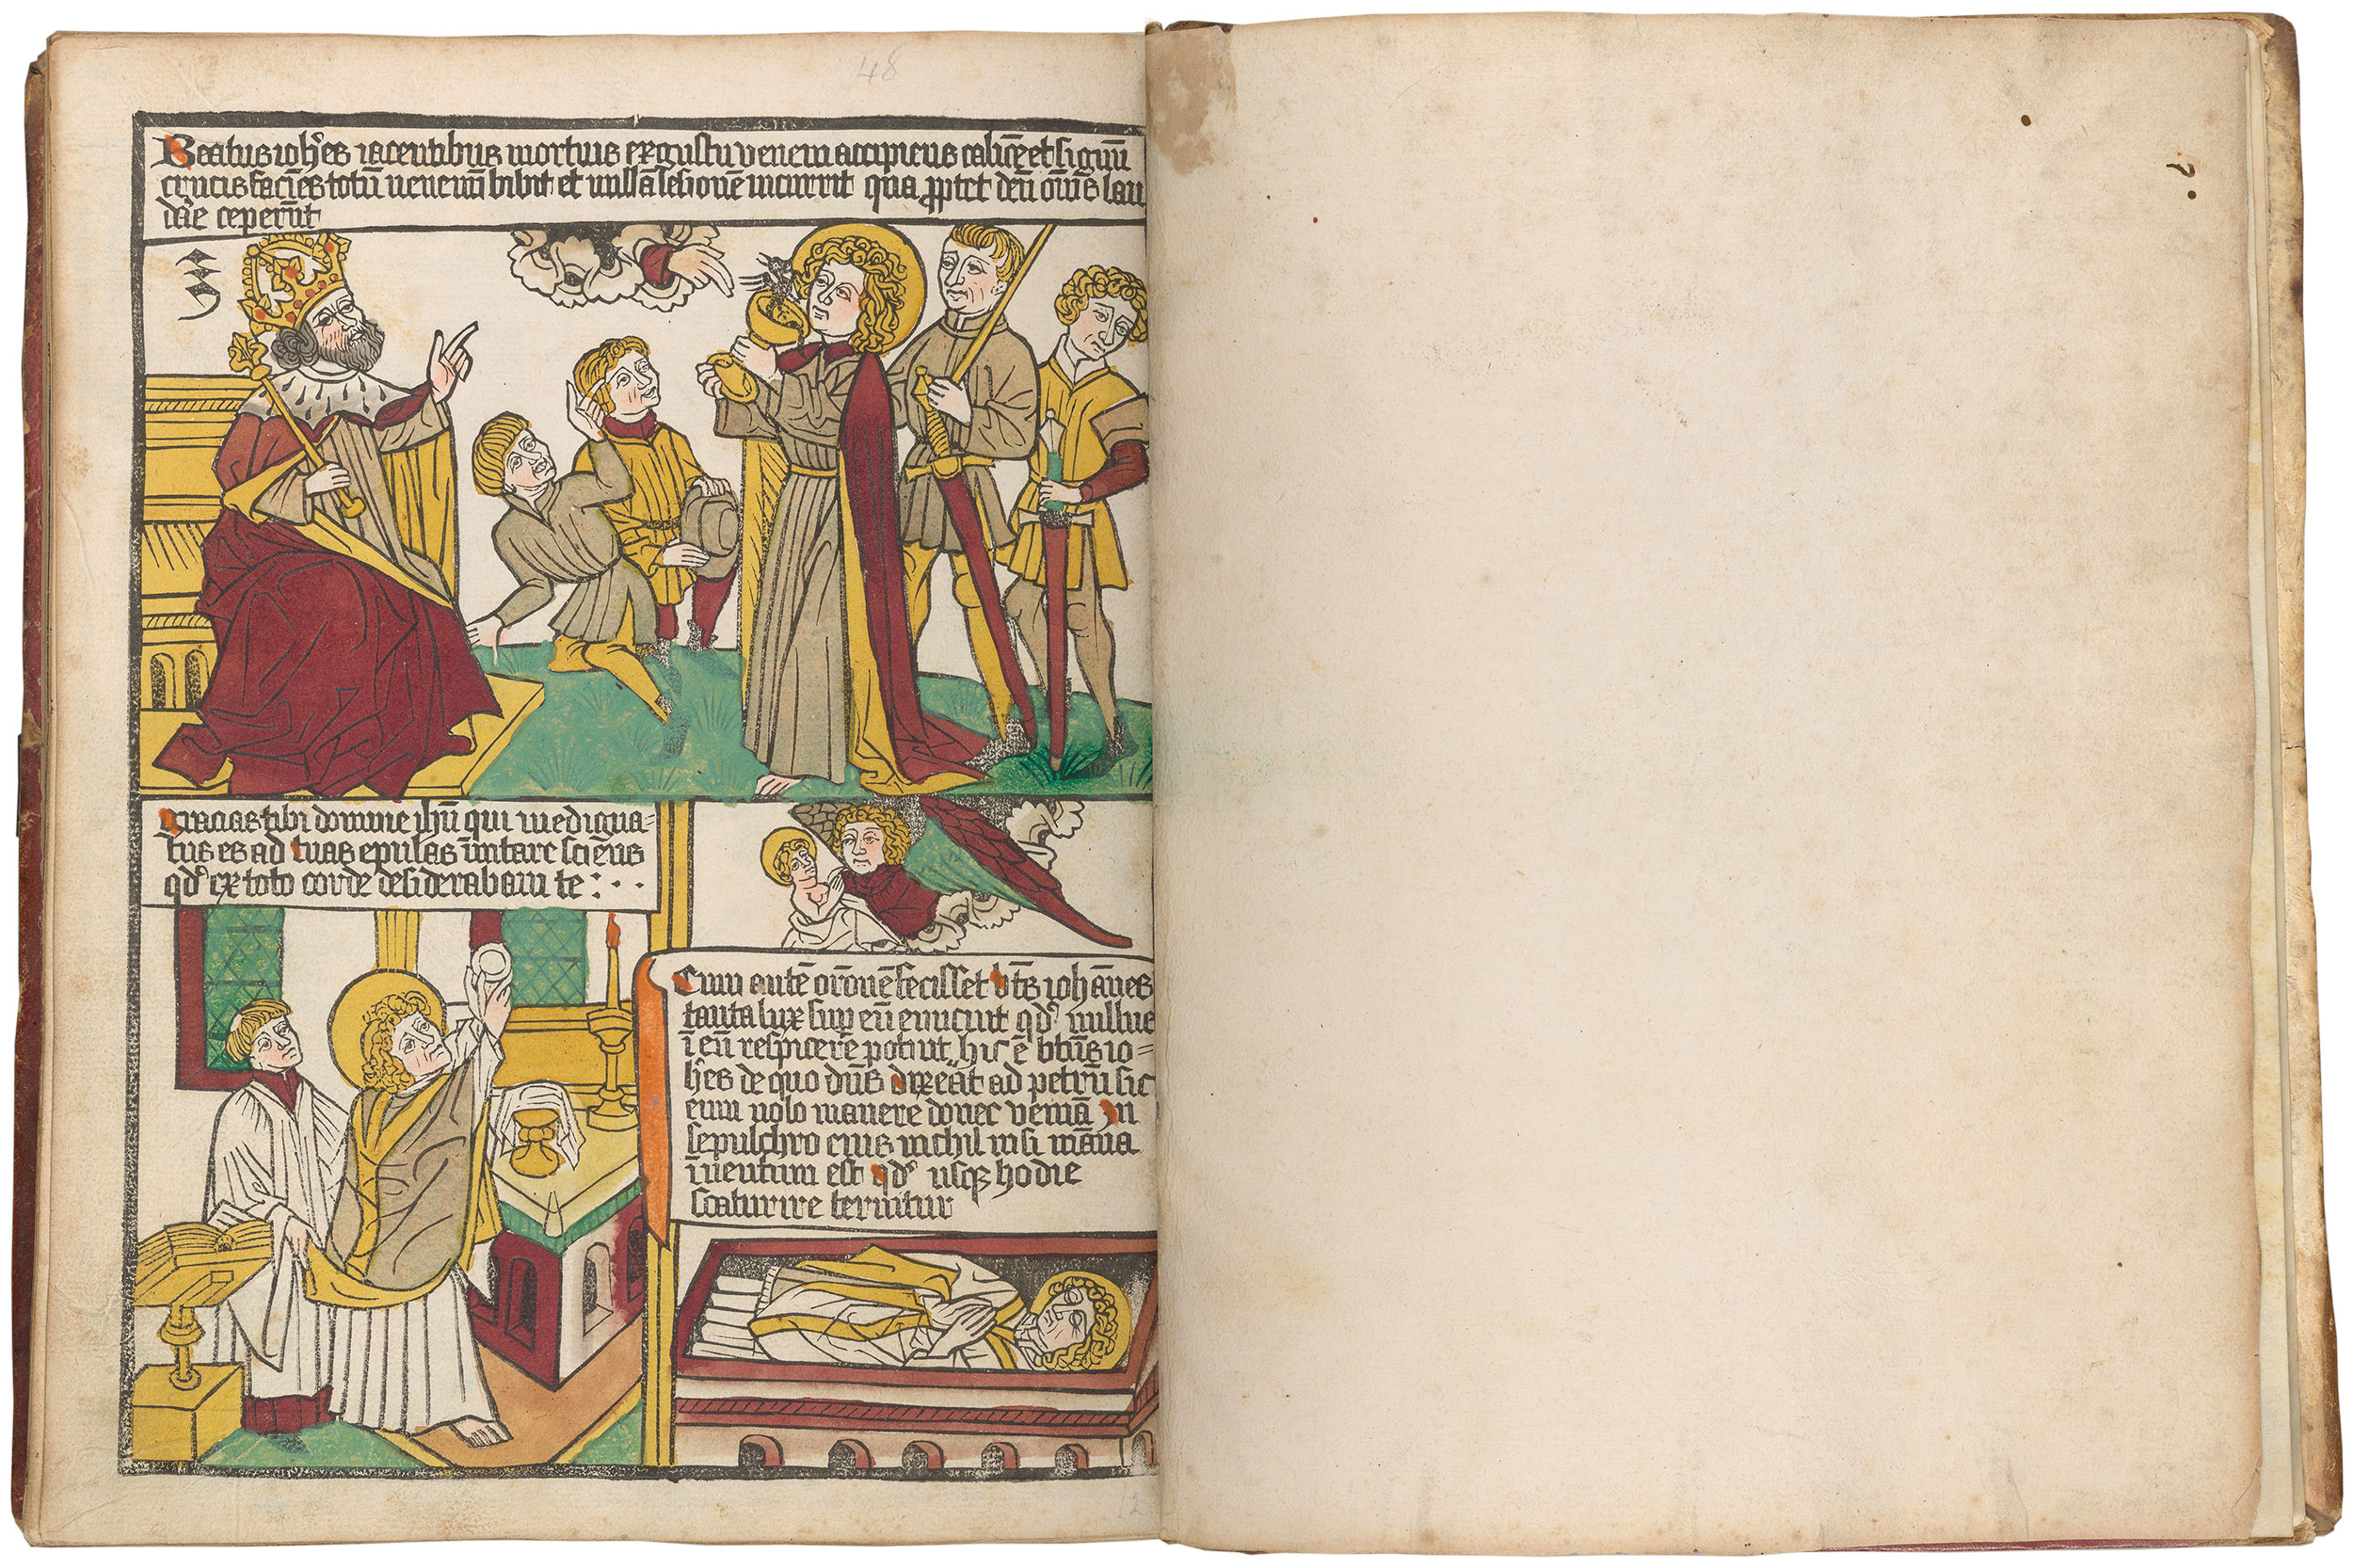 48
Beatus ioh̄es iacentibus mortuis ex gustu veneni accipiens calicē et signū
crucis faciēs totū venenū bibit et nullā lesionē incurrit qua ꝓpter deū om̄s lau
dāe ceperūt
Gracias tibi domine ihū qui me digna=
tus es ad tuas epulas īuitare sciens
qd' ex toto corde desiderabam te : · ·
Cum autē or̄onē fecisset bt̄s iohānes
tanta lux sup eū emicuit qd' nullus
ī eū respicere potuit hic ē btūs io=
h̄es de quo dūs dixeāt ad petrū sic
eum volo manere donec veniā In
sepulchro eius nichil nisi māna
īuentum est qd' usqꝫ hodie
scaturire cernitur
12